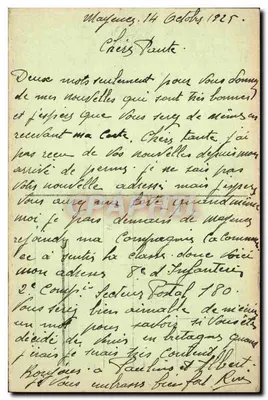 Mayence, 14 Octobre 1925.
Chère Tante.
Deux mots seulement pour vous donner
de mes nouvelles qui sont très bonnes
et j'espère que vous serez de même en
recevant ma carte. Chère tante j'ai
pas reçu de vos nouvelles depuis mon
arrivé de perme je ne sais pas
votre nouvelle adresse mais j'espère
vous aurez
moi je pars demain de mayence
rejoindre ma Compagnie
la classe donc voici
mon adresse 8e d'Infanterie
2e Compie Secteur Postal 180.
Vous serez bien aimable de m'écrire
un mot pour savoir si vous êtes
décidé de venir en bretagne quand
j'irais je serais très content.
Bonjours à et Albert.
Je vous embrasse bien fort.